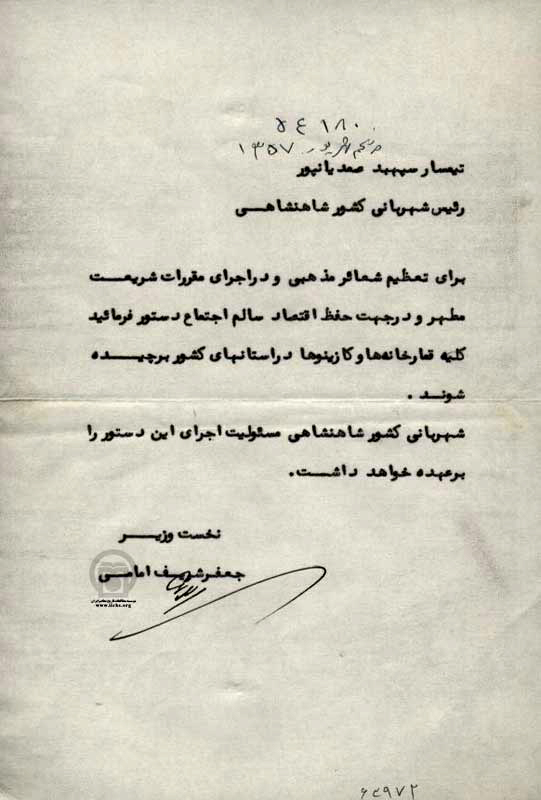 ۵٤۱۸۰
پنجم شهریور ۱۳۵۷
تیمسار سپهبد صمدیانپور
رئیس شهربانی کشور شاهنشاهی
برای تعظیم شعائر مذهبی و در اجرای مقررات شریعت
مطهر و در جهت حفظ اقتصاد سالم اجتماع دستور فرمائید
کلیه قمارخانه‌ها و کازینوها در استانهای کشور برچیده
شوند .
شهربانی کشور شاهنشاهی مسئولیت اجرای این دستور را
برعهده خواهد داشت.
نخست وزیر
جعفر شریف امامی
www.iichs.org